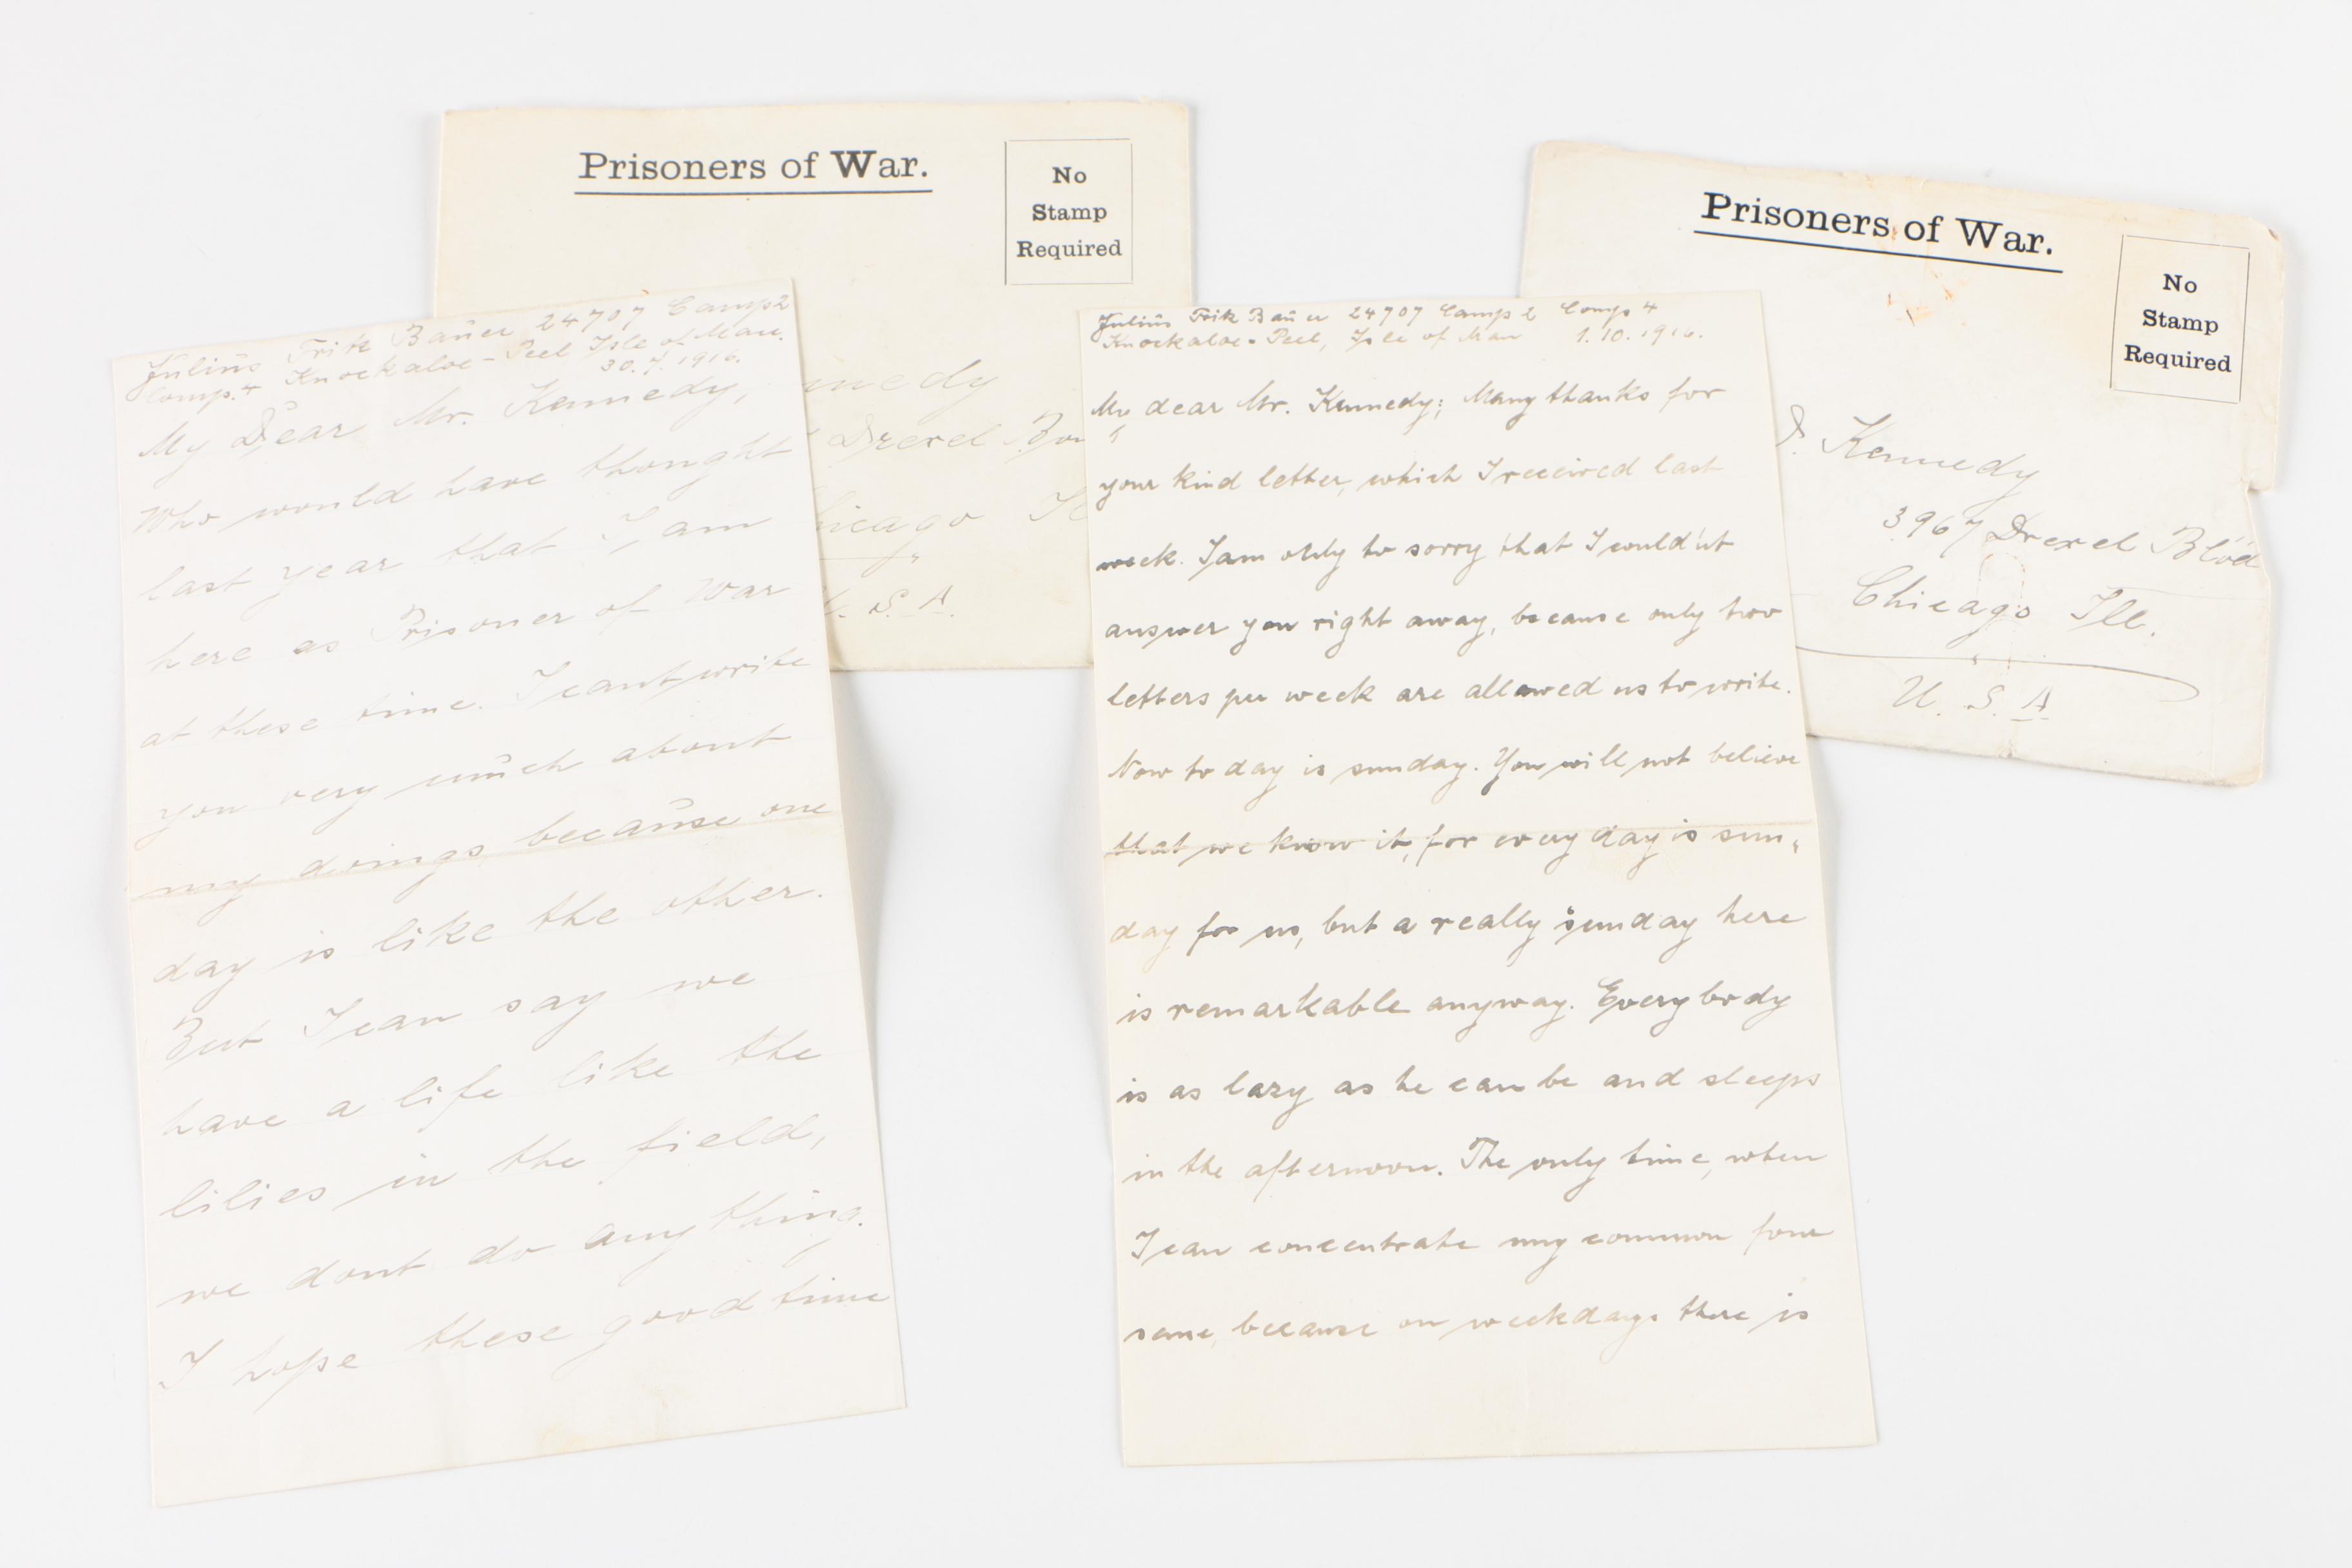 Prisoners of War.
No
Stamp
Required
Drexel
U. S. A.
Prisoners of War.
No
Stamp
Required
Kennedy
3967 Drexel Blvd
Chicago Ill.
U. S. A
Julius Fritz Bauer 24707 Camp 2
Comp. 4 Knockaloe - Peel Isle of Man.
30. 7. 1916.
My Dear Mr. Kennedy,
Who would have thought
last year that I am
here as Prisoner of War
at these time. I cant write
you very much about
my doings, because one
day is like the other.
But I can say we
have a life like the
lilies in the field,
we dont do anything.
I hope these good time
Julius Fritz Bauer 24707 Camp 2 Comp 4
Knockaloe - Peel, Isle of Man 1. 10. 1916.
My dear Mr. Kennedy; Many thanks for
your kind letter, which I received last
week. I am only to sorry that I would'nt
answer you right away, because only two
letters per week are allowed us to write.
Now to day is sunday. You will not believe
that we know it, for every day is sun„
day for us, but a really sunday here
is remarkable anyway. Everybody
is as lazy as he can be and sleeps
in the afternoon. The only time, when
I can concentrate my common four
sense, because on weekdays there is